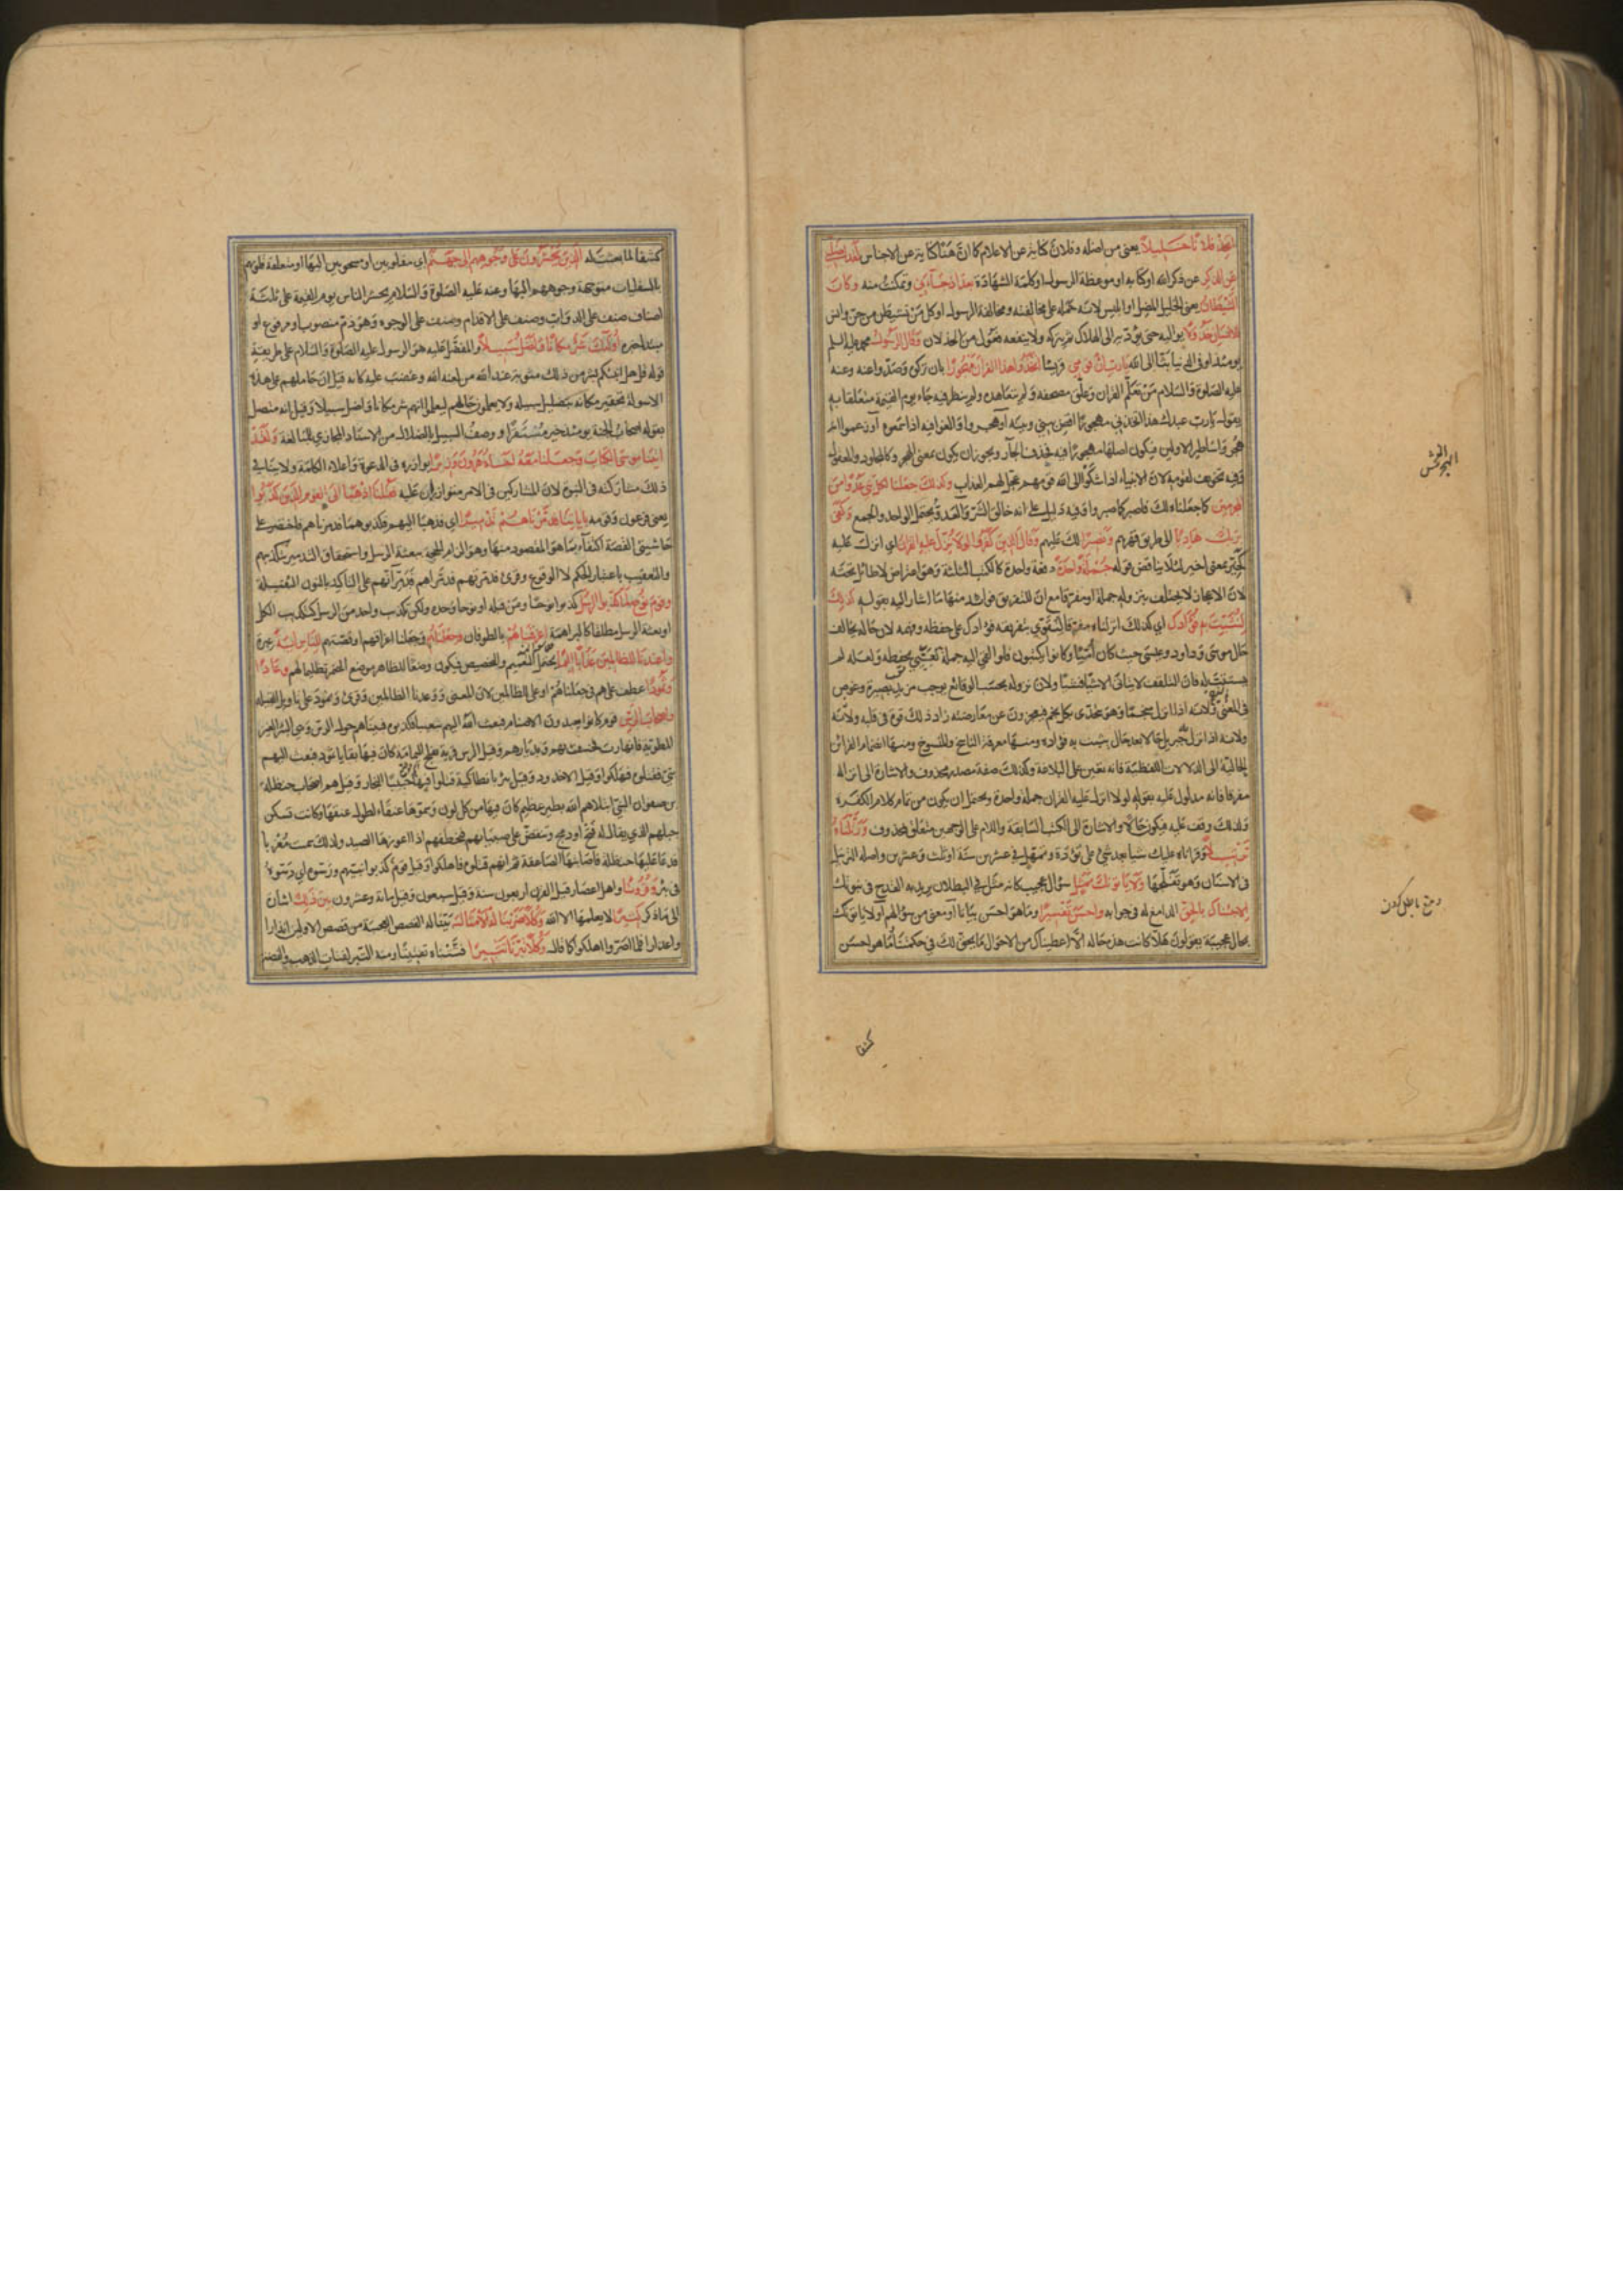 اتخذ فلانا خليلا يعني من اضله وفلان كناية عن الاعلام كما ان هنا كناية عن الاجناس لقد اضلني
عن الذكر عن ذكر الله او كتابه او موعظة الرسول او كلمة الشهادة بعد اذ جاءني وتمكنت منه وكان
الشيطان يعني الخليل المضل او ابليس لانه حمله على مخالته ومخالفة الرسول او كل من تشيطن من جن وانس
للانسان خذولا يواليه حتى يؤديه الى الهلاك ثم يتركه ولا ينفعه فعول من الخذلان وقال الرسول محمد عليه السلم
يومئذ او في الدنيا بثا الى الله يارب ان قومي قريشا اتخذوا هذا القرآن مهجورا بان تركوه وصدوا عنه وعنه
عليه الصلوة والسلام من تعلم القران وعلق مصحفه ولم يتعاهده ولم ينظر فيه جاء يوم القيمة متعلقا به
يقول يارب عبدك هذا اتخذني مهجورا اقض بيني وبينه او هجروا ولغوا فيه اذا سمعوه او زعموا انه
هجر واساطير الاولين فيكون اصله مهجورا فيه فحذف الجار ويجوز ان يكون بمعنى الهجر كالمجلود والمعقول
وفيه تخويف لقومه لان الانبياء اذا شكوا الى الله قومهم عجل لهم العذاب وكذلك جعلنا لكل نبي عدوا من
المجرمين كما جعلناه لك فاصبر كما صبروا وفيه دليل على انه خالق الشر والعدو يحتمل الواحد والجمع وكفى
بربك هاديا الى طريق قهرهم ونصيرا لك عليهم وقال الذين كفروا لولا نزل عليه القران اي انزل عليه
كخبر بمعنى اخبر لئلا يناقض قوله جملة واحدة دفعة واحدة كالكتب الثلثة وهو اعتراض لا طائل تحته
لان الاعجاز لا يختلف بنزوله جملة او مفرقا مع ان للتفريق فوائد منها ما اشار اليه بقوله كذلك
لنثبت به فؤادك اي كذلك انزلناه مفرقا لنقوي بتفريقه فؤادك على حفظه وفهمه لان حاله يخالف
حال موسى وداود وعيسى حيث كان اميا وكانوا يكتبون فلو القي اليه جملة تعيى بحفظه ولعله لم
يستتب له فان التلقف لا يتأتى الا شيئا فشيئا ولان نزوله بحسب الوقائع يوجب مزيد بصيرة وغوص
في المعنى ولانه اذا نزل منجما وهو يتحدى بكل نجم فيعجزون عن معارضته زاد ذلك قوة في قلبه ولانه
ولانه اذا نزل جبريل حالا بعد حال يثبت به فؤاده ومنها معرفة الناسخ والمنسوخ ومنها انضمام القرائن
الحالية الى الدلالات اللفظية فانه يعين على البلاغة وكذلك صفة مصدر محذوف والاشارة الى انزاله
مفرقا فانه مدلول عليه بقوله لولا انزل عليه القران جملة واحدة ويحتمل ان يكون من تمام كلام الكفرة
ولذلك وقف عليه فيكون حالا والاشارة الى الكتب السابقة واللام على الوجهين متعلق بمحذوف ورتلناه
ترتيلا وقراناه عليك شيئا بعد شئ على تؤدة وتمهل في عشرين سنة او ثلث وعشرين واصله الترتيل
في الاسنان وهو تفليجها ولا يأتونك بمثل سؤال عجيب كانه مثل في البطلان يريد به القدح في نبوتك
الا جئناك بالحق الدامغ له في جوابه واحسن تفسيرا وما هو احسن بيانا او معنى من سؤالهم او لا يأتونك
بحال عجيبة يقولون هلا كانت هذه حاله الا اعطيناك من الاحوال ما يحق لك في حكمتنا وما هو احسن
كشفا
كشفا لما بعثت له الذين يحشرون على وجوههم الى جهنم اي مقلوبين او مسحوبين اليها او متعلقة قلوبهم
بالسفليات متوجهة وجوههم اليها وعنه عليه الصلوة والسلام يحشر الناس يوم القيمة على ثلثة
اصناف صنف على الدواب وصنف على الاقدام وصنف على الوجوه وهو ذم منصوب او مرفوع او
مبتدأ خبره اولئك شر مكانا واضل سبيلا والمفضل عليه هو الرسول عليه الصلوة والسلام على طريقة
قوله قل هل انبئكم بشر من ذلك مثوبة عند الله من لعنه الله وغضب عليه كانه قيل ان حاملهم على هذه
الاسولة تحقير مكانه بتضليل سبيله ولا يعلمون حالهم ليعلموا انهم شر مكانا واضل سبيلا وقيل انه متصل
بقوله اصحاب الجنة يومئذ خير مستقرا ووصف السبيل بالضلال من الاسناد المجازي للمبالغة ولقد
اتينا موسى الكتاب وجعلنا معه اخاه هرون وزيرا يوازره في الدعوة واعلاء الكلمة ولا ينافي
ذلك مشاركته في النبوة لان المشاركين في الامر متوازران عليه فقلنا اذهبا الى القوم الذين كذبوا
يعني فرعون وقومه باياتنا فدمرناهم تدميرا اي فذهبا اليهم فكذبوهما فدمرناهم فاختصر على
حاشيتي القصة اكتفاء بما هو المقصود منها وهو الزام الحجة ببعثة الرسل واستحقاق التدمير بتكذيبهم
والتعقيب باعتبار الحكم لا الوقوع وقرئ فدمرتهم فدمراهم فدمرانهم على التاكيد بالنون الثقيلة
وقوم نوح لما كذبوا الرسل كذبوا نوحا ومن قبله او نوحا وحده ولكن تكذيب واحد من الرسل كتكذيب الكل
او بعثة الرسل مطلقا كالبراهمة اغرقناهم بالطوفان وجعلناهم وجعلنا اغراقهم او قصتهم للناس اية عبرة
واعتدنا للظالمين عذابا اليما يحتمل التعميم والتخصيص فيكون وضعا للظاهر موضع المضمر تظليما لهم وعادا
وثمودا عطف على هم في جعلناهم او على الظالمين لان المعنى ووعدنا الظالمين وقرئ وثمود على تاويل القبيلة
واصحاب الرس قوم كانوا يعبدون الاصنام فبعث الله اليهم شعيبا فكذبوه فبيناهم حول الرس وهي البئر الغير
المطوية فانهارت فخسف بهم وبديارهم وقيل الرس قرية بفلج اليمامة كان فيها بقايا ثمود فبعث اليهم
نبي فقتلوه فهلكوا وقيل الاخدود وقيل بئر بانطاكية قتلوا فيها حبيبا النجار وقيل هم اصحاب حنظلة
بن صفوان النبي ابتلاهم الله بطير عظيم كان فيها من كل لون وسموها عنقاء لطول عنقها وكانت تسكن
جبلهم الذي يقال له فتخ او دمخ وتنقض على صبيانهم فتخطفهم اذا اعوزها الصيد ولذلك سميت مغربا
فدعا عليها حنظلة فاصابتها الصاعقة ثم انهم قتلوه فاهلكوا وقيل قوم كذبوا نبيهم ورسوه اي دسوه
في بئر وقرونا واهل اعصار قيل القرن اربعون سنة وقيل سبعون وقيل مائة وعشرون بين ذلك اشارة
الى ما ذكر كثيرا لا يعلمها الا الله وكلا ضربنا له الامثال بينا له القصص العجيبة من قصص الاولين انذارا
واعذارا فلما اصروا اهلكوا كما قال وكلا تبرنا تتبيرا فتتناه تفتيتا ومنه التبر لفتات الذهب والفضة